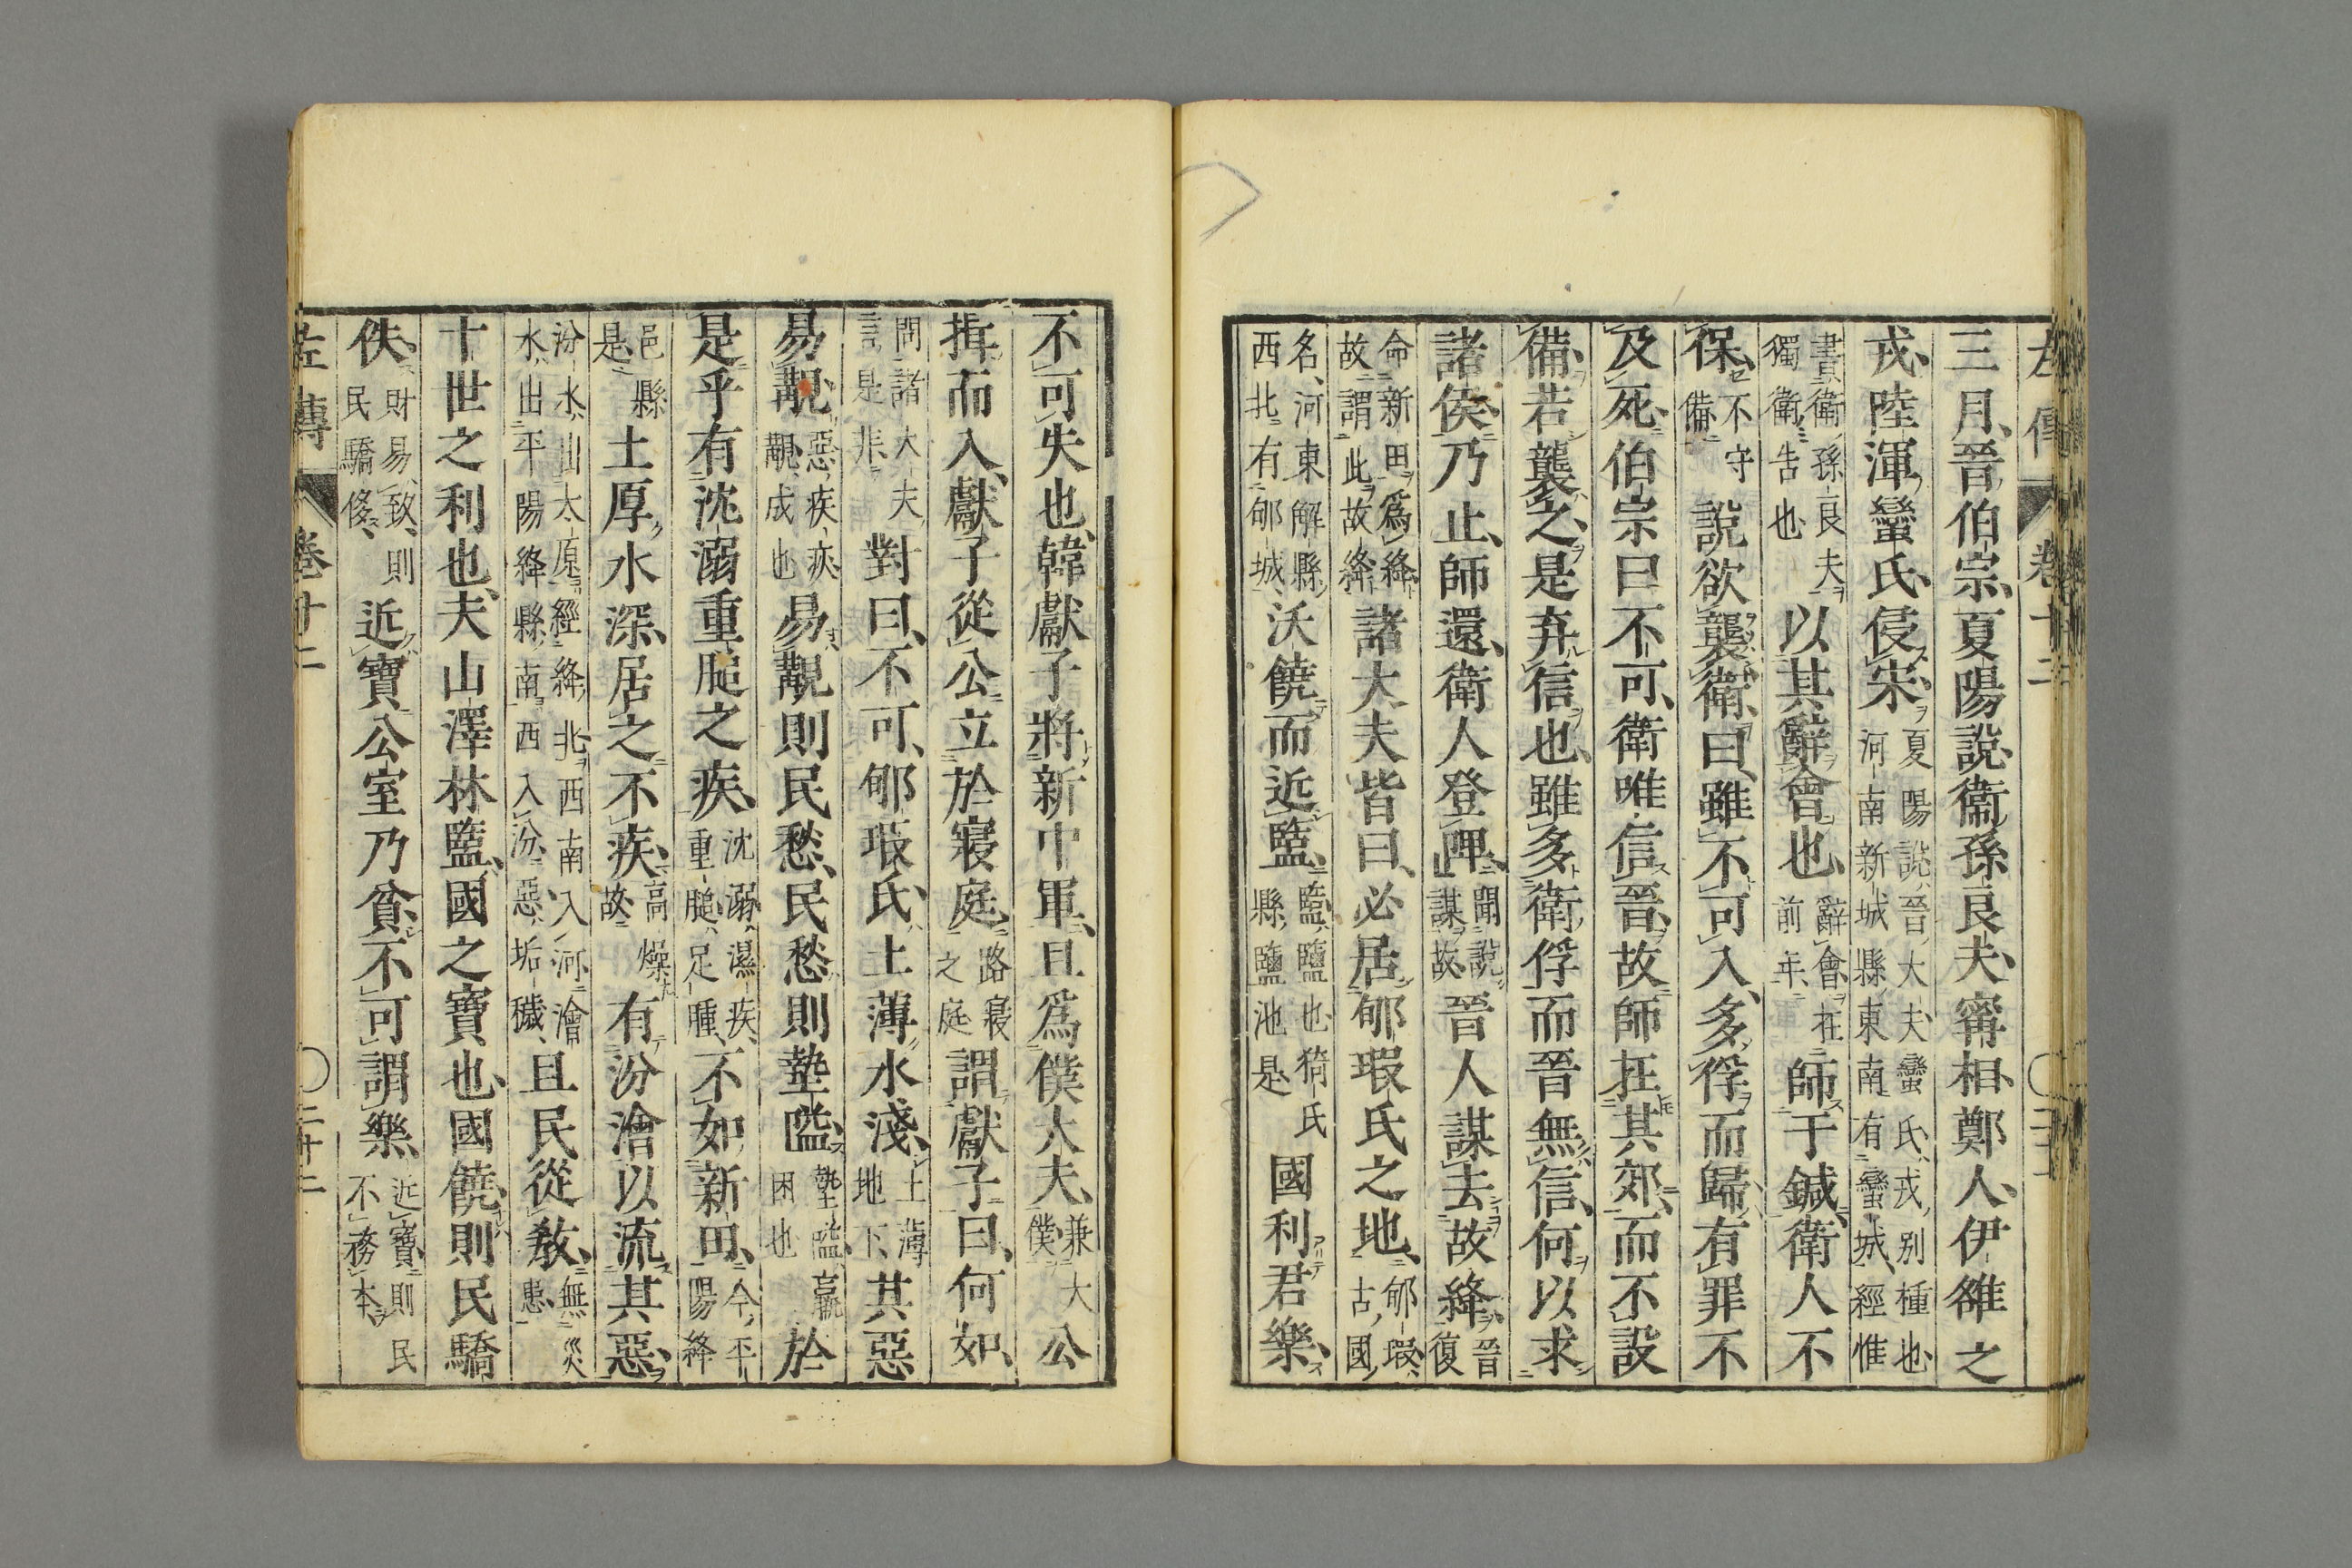 左傳 卷十二
三月、晉伯宗、夏陽說、衛孫良夫、甯相、鄭人、伊雒之
戎、陸渾、蠻氏、侵宋、夏陽說、晉大夫、蠻氏、戎別種也、河南新城縣東南有蠻城、經惟
書衛孫良夫、獨衛告也以其辭會也、辭會在前年、師于鍼、衛人不
保、不守備說欲襲衛、曰、雖不可入、多俘而歸、有罪不
及死、伯宗曰不可、衛唯信晉、故師在其郊、而不設
備、若襲之、是弃信也、雖多衛俘而晉無信、何以求
諸侯、乃止、師還、衛人登陴、聞說謀故、晉人謀去故絳、晉復
命新田爲絳、故謂此故絳諸大夫皆曰、必居郇瑕氏之地、郇瑕、古國
名、河東解縣西北有郇城、沃饒而近盬、盬、鹽也、猗氏縣、鹽池是國利君樂、
不可失也、韓獻子將新中軍、且爲僕大夫、兼大僕公
揖而入、獻子從公立於寢庭、路寢之庭謂獻子曰、何如、
問諸大夫言是非對曰、不可、郇瑕氏、土薄水淺、土薄地下、其惡
易覯、惡、疾疢覯、成也易覯則民愁、民愁則墊隘、墊隘、羸困也於
是乎有沈溺重膇之疾、沈溺、濕疾、重膇、足腫、不如新田、今平陽絳
邑縣是、土厚水深、居之不疾、高燥故有汾澮以流其惡、
汾水、出太原經絳北西南入河、澮水、出平陽絳縣南西入汾、惡、垢穢、且民從教、無災患
十世之利也、夫山澤林盬、國之寶也、國饒、則民驕
佚、財易致則民驕侈、近寶、公室乃貧、不可謂樂、近寶、則民不務本、
左傳 卷十二 〇二十二